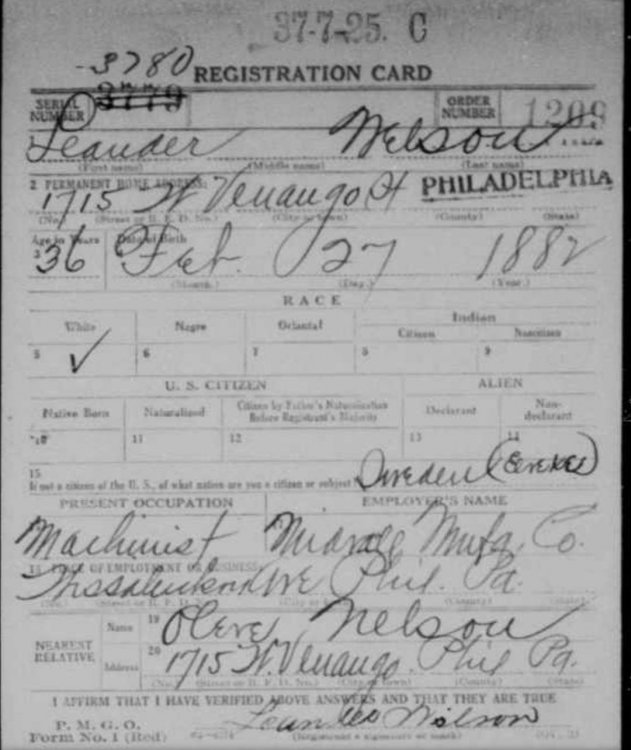 37-7-25. C
3780 REGISTRATION CARD
SERIAL NUMBER 3779 ORDER NUMBER 1209
Leander Nelson
(First name) (Middle name) (Last name)
2 PERMANENT HOME ADDRESS:
1715 W Venango St PHILADELPHIA
(No.) (Street or R. F. D. No.) (City or town) (County) (State)
Age in Years Date of Birth
3
36 Feb. 27 1882
(Month.) (Day.) (Year.)
RACE
White Negro Oriental Indian
Citizen Noncitizen
5 ✓ 6 7 8 9
U. S. CITIZEN ALIEN
Native Born Naturalized Citizen by Father's Naturalization Before Registrant's Majority Declarant Non-declarant
10 11 12 13 14
15
If not a citizen of the U. S., of what nation are you a citizen or subject? Sweden
PRESENT OCCUPATION EMPLOYER'S NAME
Machinist Mfg. Co.
PLACE OF EMPLOYMENT OR BUSINESS:
Phil. Pa.
(No.) (Street or R. F. D. No.) (City or town) (County) (State)
NEAREST RELATIVE Name 19 Nelson
Address 20 1715 W. Venango Phil Pa.
(No.) (Street or R. F. D. No.) (City or town) (County) (State)
I AFFIRM THAT I HAVE VERIFIED ABOVE ANSWERS AND THAT THEY ARE TRUE
P. M. G. O.
Form No. 1 (Red) (Registrant's signature or mark)